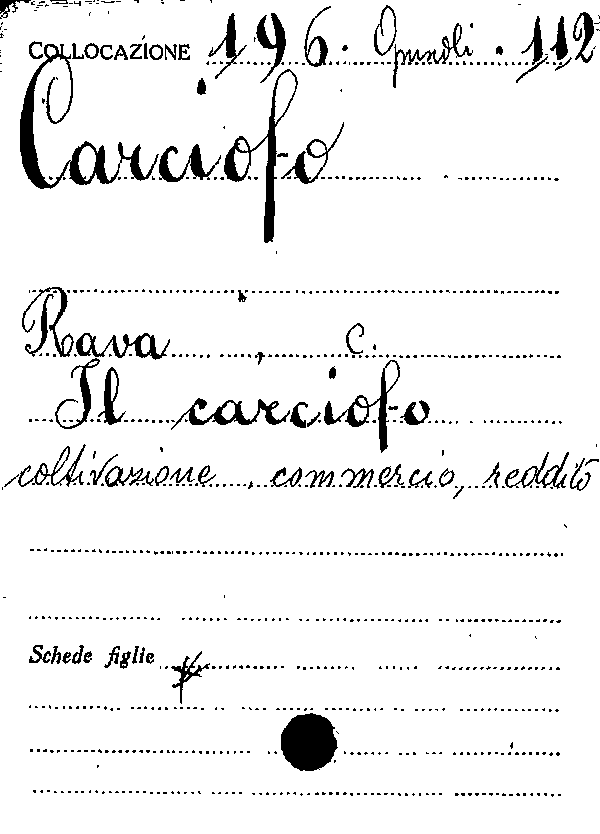 COLLOCAZIONE 196. Opuscoli . 112
Carciofo
Rava, C.
Il carciofo
coltivazione, commercio, reddito
Schede figlie